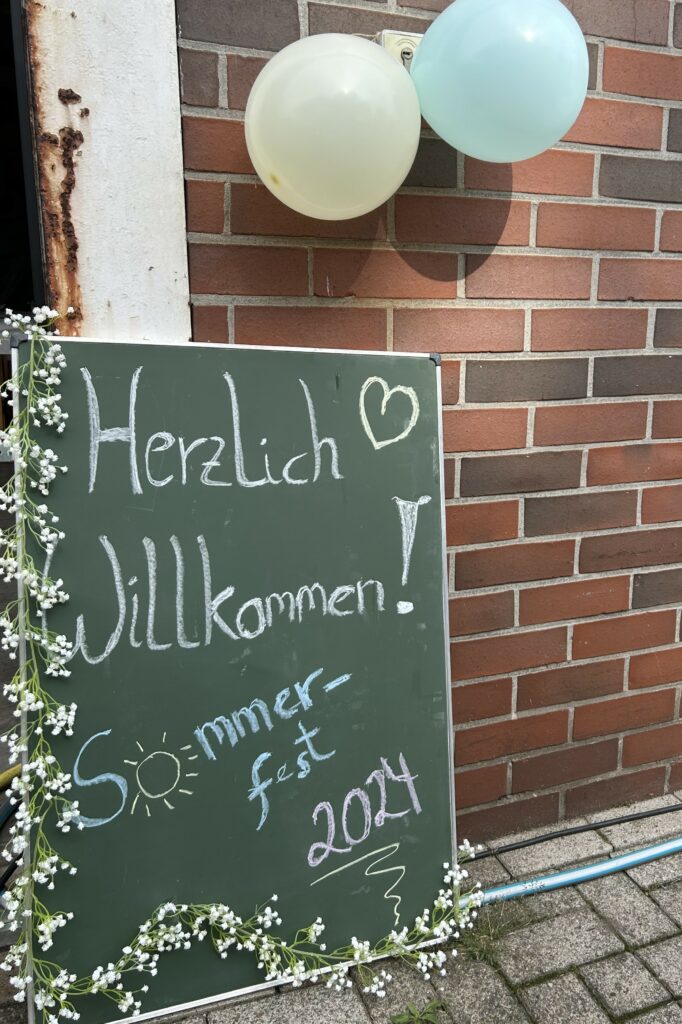 Herzlich
Willkommen!
Sommer-
fest
2024